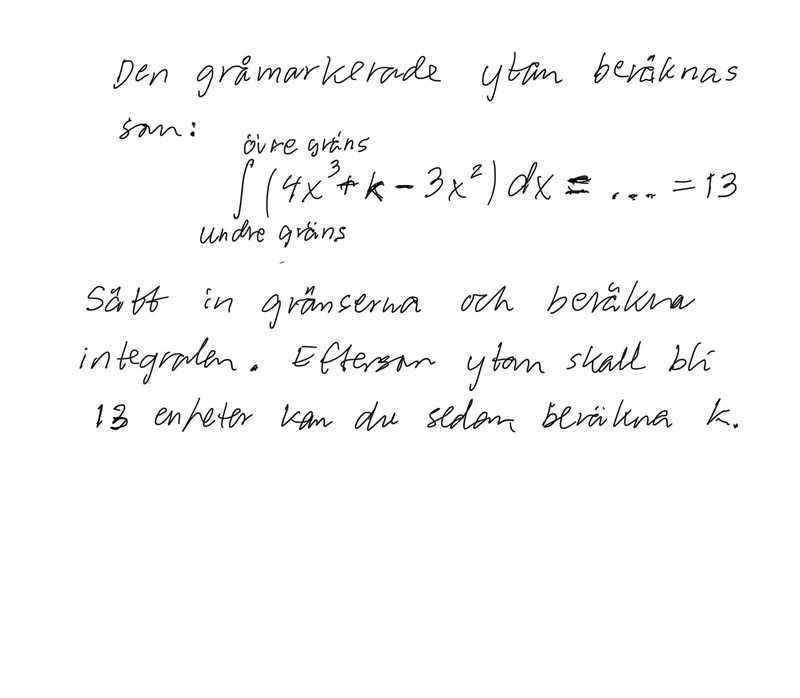 Den gråmarkerade ytan beräknas
som:
övre gräns
∫ (4x³ + k - 3x²) dx = ... = 13
undre gräns
Sätt in gränserna och beräkna
integralen. Eftersom ytan skall bli
13 enheter kan du sedan beräkna k.